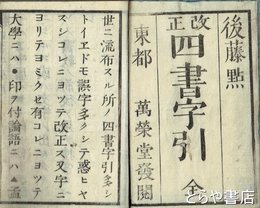 後藤點
改正
四書字引
全
東都 萬榮堂發閲
世ニ流布スル所ノ四書字引多シ
トイヱドモ誤字多クシテ惑ヒヤ
スシコレニヨツテ改正ス又字ニ
ヨリテヨミクセ有コレニヨツテ
大學ニハ・印ヲ付論語ニハ▲孟
とらや書店